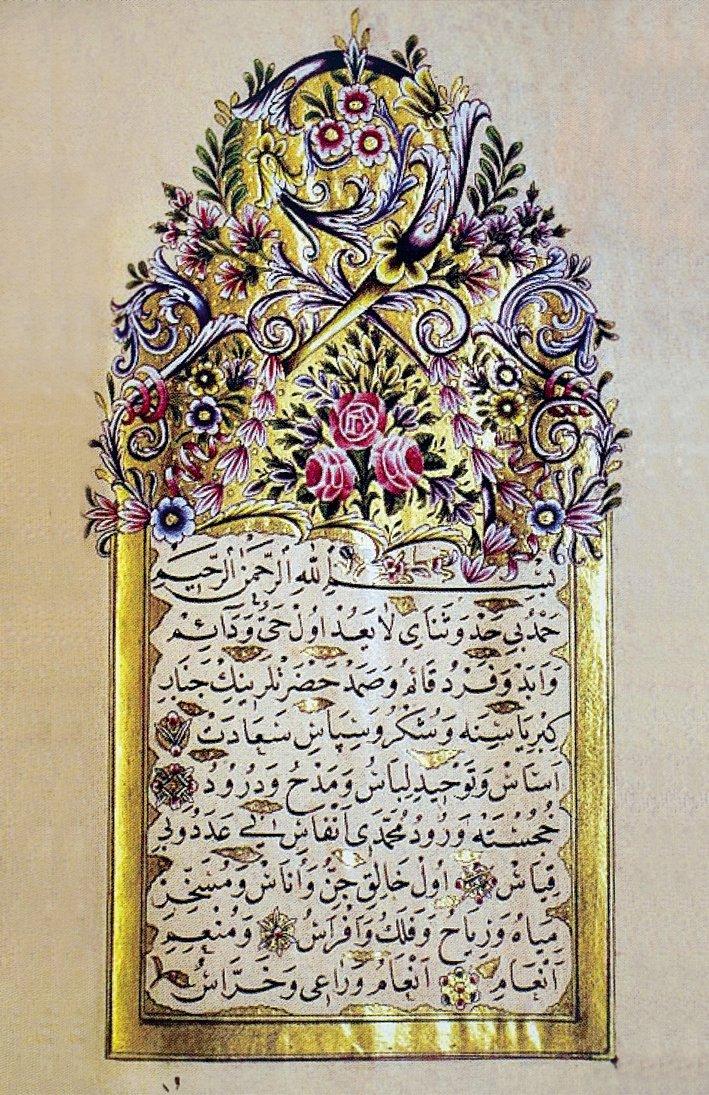 بِسْمِ اللهِ الرَّحْمٰنِ الرَّحِيمِ
حَمْدِ بِي حَدْ وَثَنَاىِ لَا بَعُدْ اُولْ حَىُّ وَدَآئِمْ
وَاَبَدْ وَفَرْدُ قَائِمْ وَصَمَدْ حَضْرَتْلَرِينِكْ جَنَابِ
كِبْرِيَاسِنَه وَشُكْرُ وسِپَاسِ سَعَادَتْ
اَسَاسْ وَتَوْحِيدِ لِبَاسْ وَمَدْحُ وَدُرُودُ
خُجَسْتَه وُرُودُ مُحَمَّدَى اَنْفَاسِ بِي عَدَدُ وبِي
قِيَاسْ اُولْ خَالِقِ جِنُّ وَاُنَاسْ وَمُسَخِّرِ
مِيَاهُ وَرِيَاحُ وَفَلَكُ وَاَفْرَاسْ وَمُنْعِمِ
اَنْعَامِ اَنْعَامُ وَرَاعِى وَحَرَّاسْ